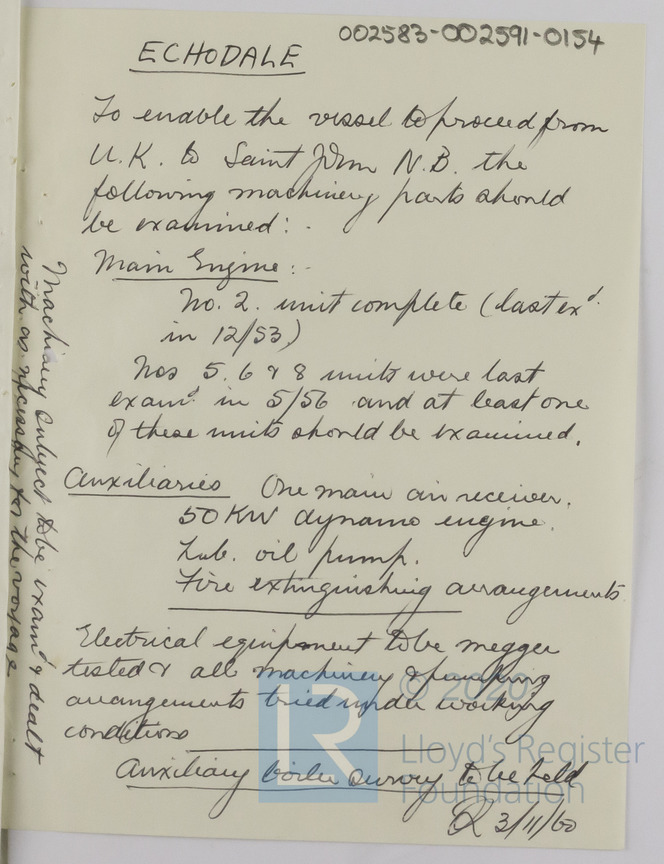 002583-002591-0154
ECHODALE
To enable the vessel to proceed from
U.K. to Saint John N.B. the
following machinery parts should
be examined: -
Main Engine: -
No. 2. unit complete (last exd.
in 12/53)
Nos 5, 6 & 8 units were last
examd. in 5/56 and at least one
of these units should be examined.
Auxiliaries One main air receiver.
50 KW dynamo engine.
Lub. oil pump.
Fire extinguishing arrangements
Electrical equipment to be megger
tested & all machinery & pumping
arrangements tried under working
conditions
Auxiliary boiler survey to be held
3/11/60
Machinery subject to be examd & dealt
with as necessary for the voyage
LR
© 2020
Lloyd's Register
Foundation